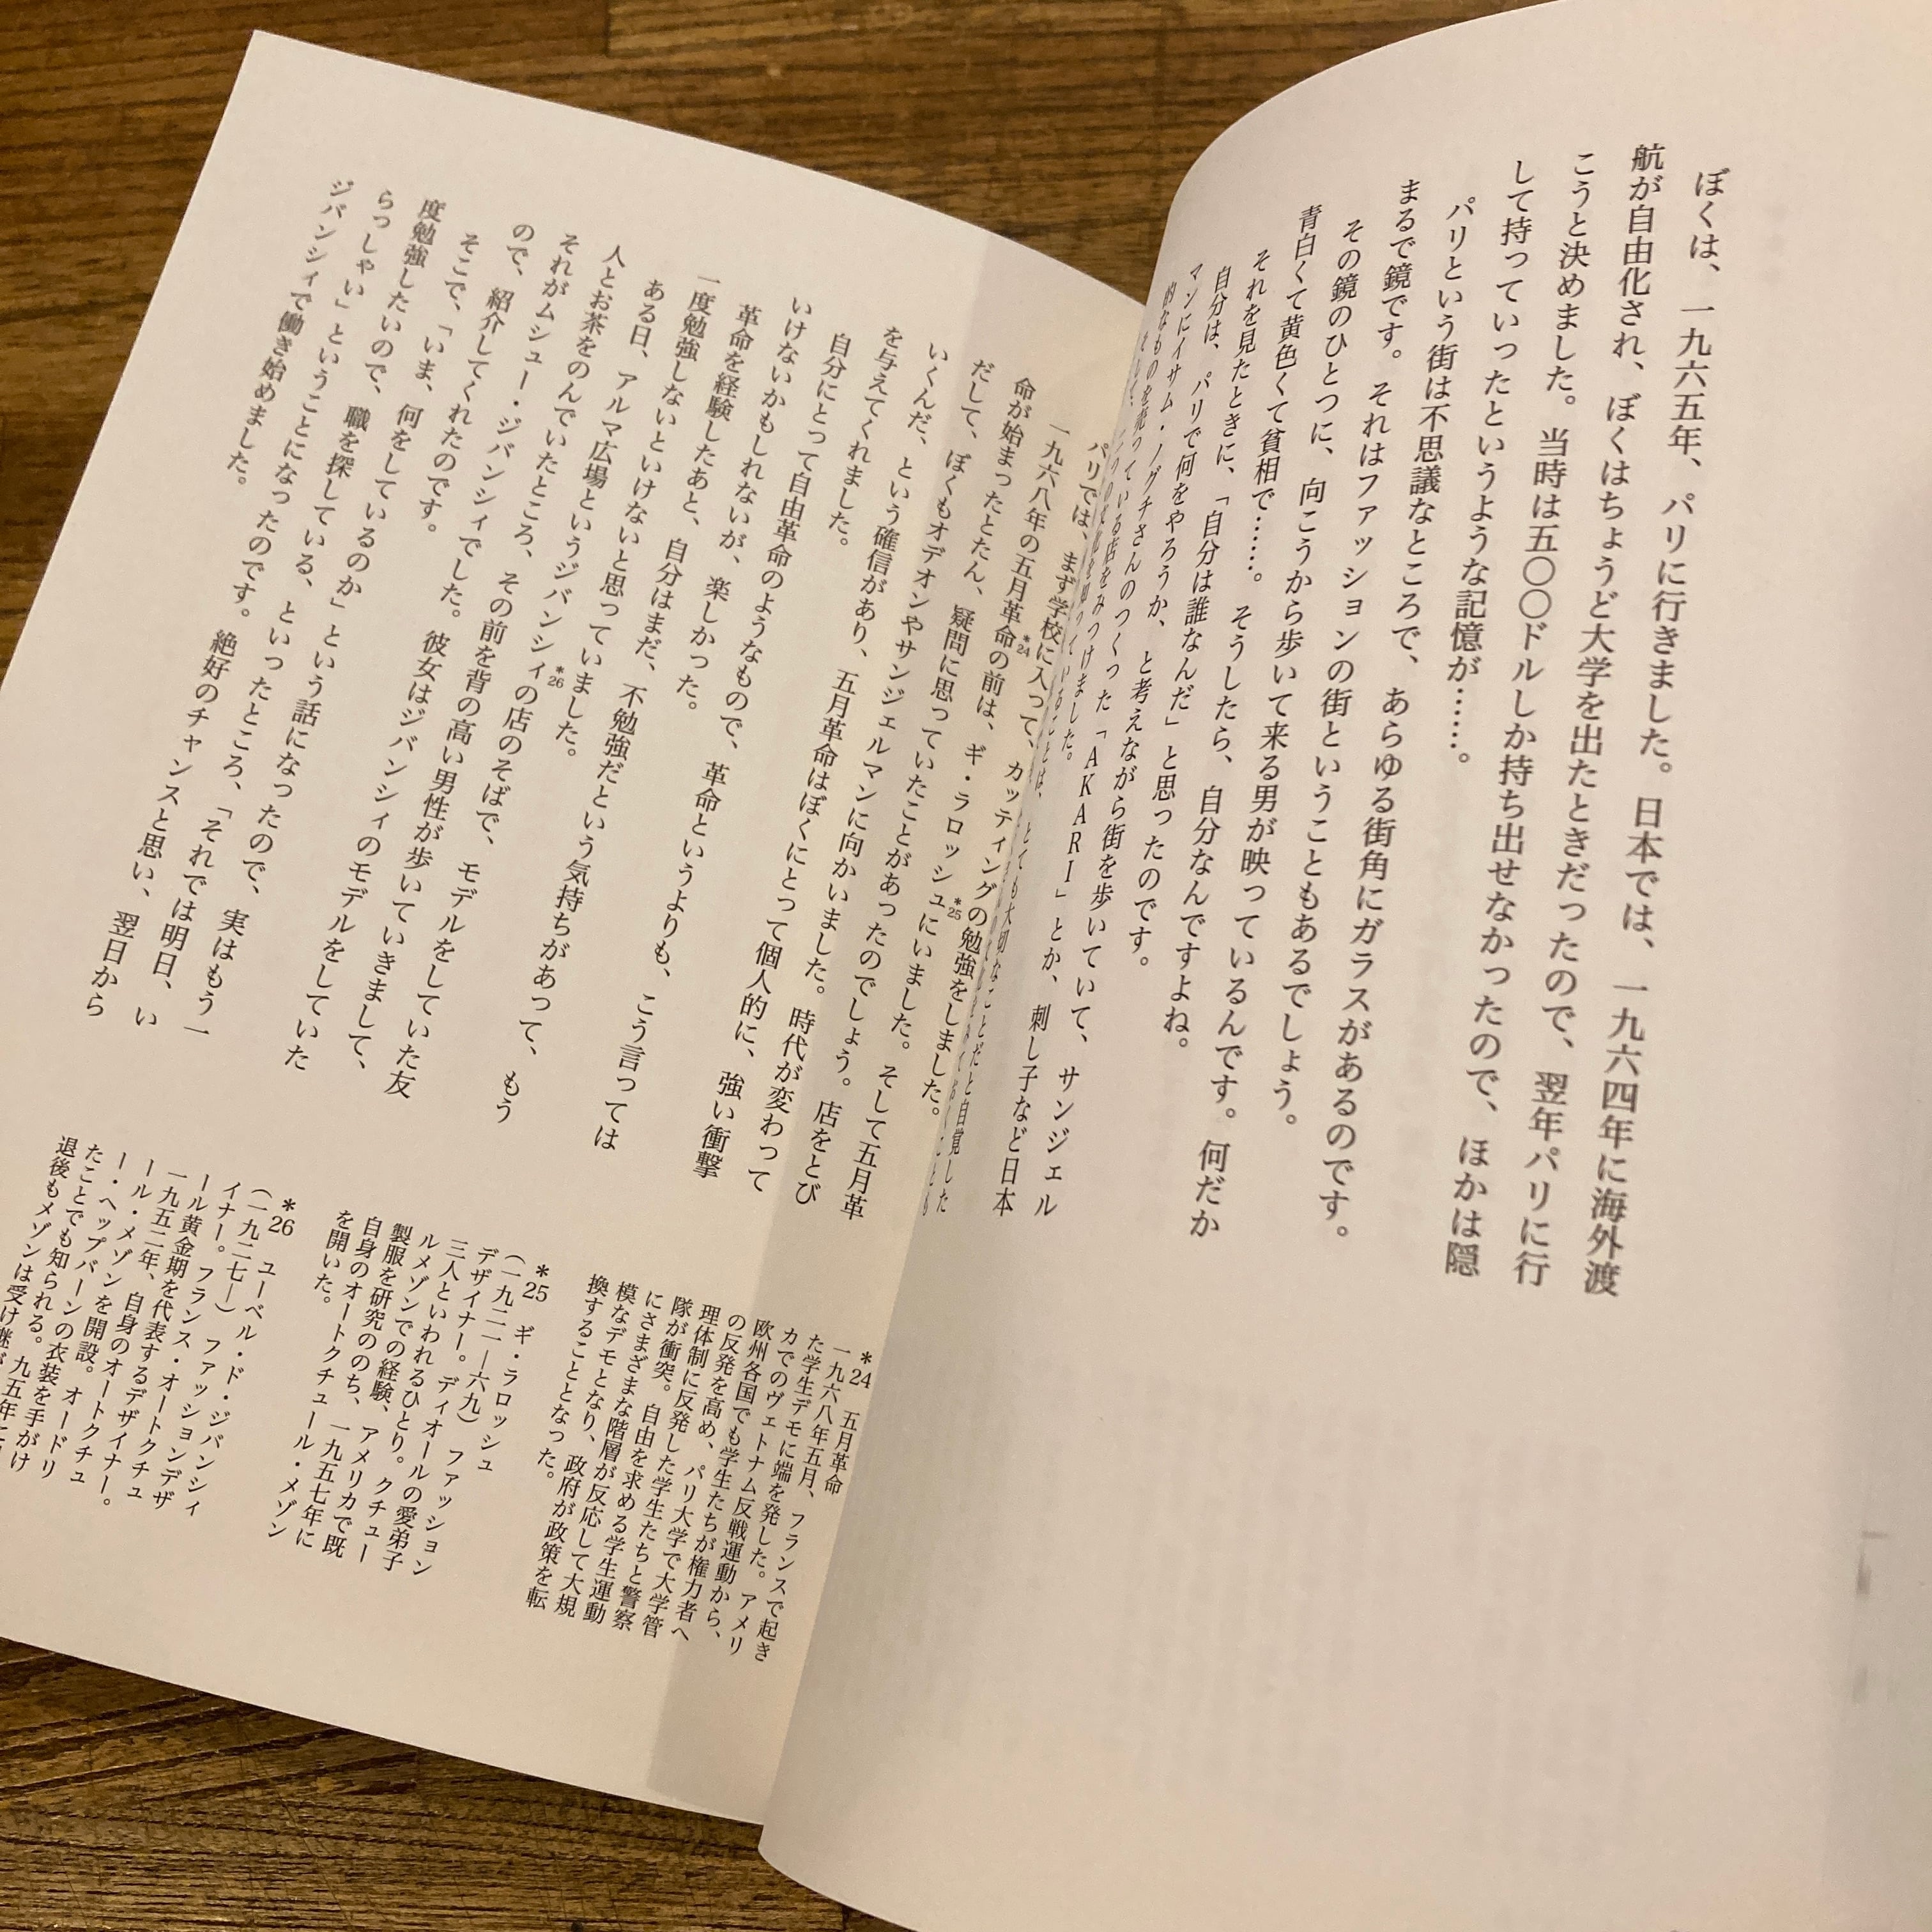 ぼくは、一九六五年、パリに行きました。日本では、一九六四年に海外渡
航が自由化され、ぼくはちょうど大学を出たときだったので、翌年パリに行
こうと決めました。当時は五〇〇ドルしか持ち出せなかったので、ほかは隠
して持っていったというような記憶が……。
パリという街は不思議なところで、あらゆる街角にガラスがあるのです。
まるで鏡です。それはファッションの街ということもあるでしょう。
その鏡のひとつに、向こうから歩いて来る男が映っているんです。何だか
青白くて黄色くて貧相で……。そうしたら、自分なんですよね。
それを見たときに、「自分は誰なんだ」と思ったのです。
自分は、パリで何をやろうか、と考えながら街を歩いていて、サンジェル
マンにイサム・ノグチさんのつくった「AKARI」とか、刺し子など日本
的なものを売っている店をみつけました。
とても大切なことだと自覚した
パリでは、まず学校に入って、カッティングの勉強をしました。
一九六八年の五月革命*24の前は、ギ・ラロッシュ*25にいました。そして五月革
命が始まったとたん、疑問に思っていたことがあったのでしょう。店をとび
だして、ぼくもオデオンやサンジェルマンに向かいました。時代が変わって
いくんだ、という確信があり、五月革命はぼくにとって個人的に、強い衝撃
を与えてくれました。
自分にとって自由革命のようなもので、革命というよりも、こう言っては
いけないかもしれないが、楽しかった。
革命を経験したあと、自分はまだ、不勉強だという気持ちがあって、もう
一度勉強しないといけないと思っていました。
ある日、アルマ広場というジバンシィ*26の店のそばで、モデルをしていた友
人とお茶をのんでいたところ、その前を背の高い男性が歩いていきまして、
それがムシュー・ジバンシィでした。彼女はジバンシィのモデルをしていた
ので、紹介してくれたのです。
そこで、「いま、何をしているのか」という話になったので、実はもう一
度勉強したいので、職を探している、といったところ、「それでは明日、い
らっしゃい」ということになったのです。絶好のチャンスと思い、翌日から
ジバンシィで働き始めました。
*24 五月革命
一九六八年五月、フランスで起き
た学生デモに端を発した。アメリ
カでのヴェトナム反戦運動から、
欧州各国でも学生たちが権力者へ
の反発を高め、パリ大学で大学管
理体制に反発した学生たちと警察
隊が衝突。自由を求める学生運動
にさまざまな階層が反応して大規
模なデモとなり、政府が政策を転
換することとなった。
*25 ギ・ラロッシュ
（一九二一―六九）ファッション
デザイナー。ディオールの愛弟子
三人といわれるひとり。クチュー
ルメゾンでの経験、アメリカで既
製服を研究ののち、一九五七年に
自身のオートクチュール・メゾン
を開いた。
*26 ユーベル・ド・ジバンシィ
（一九二七―）ファッションデザ
イナー。フランス・オートクチュ
ール黄金期を代表するデザイナー。
一九五二年、自身のオートクチュ
ール・メゾンを開設。オードリ
ー・ヘップバーンの衣装を手がけ
たことでも知られる。九五年に
退後もメゾンは受け継が